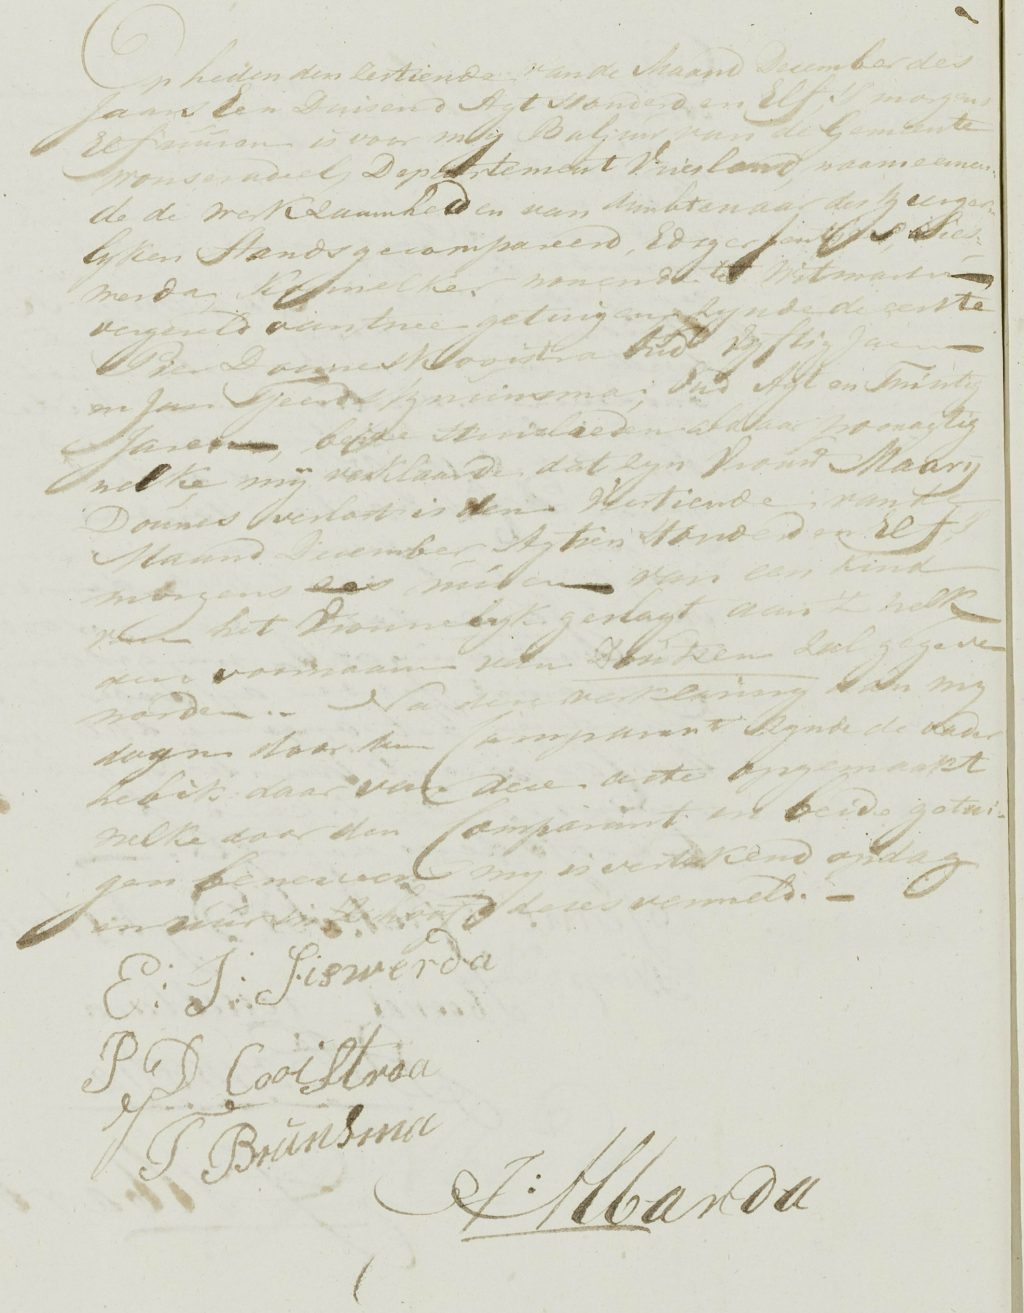 Op heden den sestiende van de Maand December des
Jaars Een Duisend Agt Honderd en Elf, 's morgens
Elf uuren is voor mij Baljuw van de Gemeente
Wonseradeel, Departement Vriesland, waarneemen-
de de werkzaamheden van Ambtenaar des Burger-
lyken Stands gecompareerd, Edsger
werda, wonende te Witmarsum
vergezeld van twee getuigen zynde de eerste
Pier Douwes Kooistra Oud Vyftig Jaaren
en Jan Tjeerds Bruinsma, Oud Agt en Twintig
Jaren, beide aldaar woonagtig
welke mij verklaarde dat zyn Vrouw Maary
Douwes verlost is den Veertiende van de
Maand December Agtien Honderd en Elf, 's
morgens ses uuren van een kind
van het Vrouwelyk geslagt aan 't welk
den voornaam van zal gegeven
worden. Na deze verklaring aan my
gedaan door den Comparant zynde de vader
heb ik daar van deze acte opgemaakt
welke door den Comparant en beide getui-
gen benevens my is vertekend op dag
en uur in 't hoofd dezes vermeld. —
E: J: Siswerda
P D Cooistraa
J T Bruinsma
J: Albarda